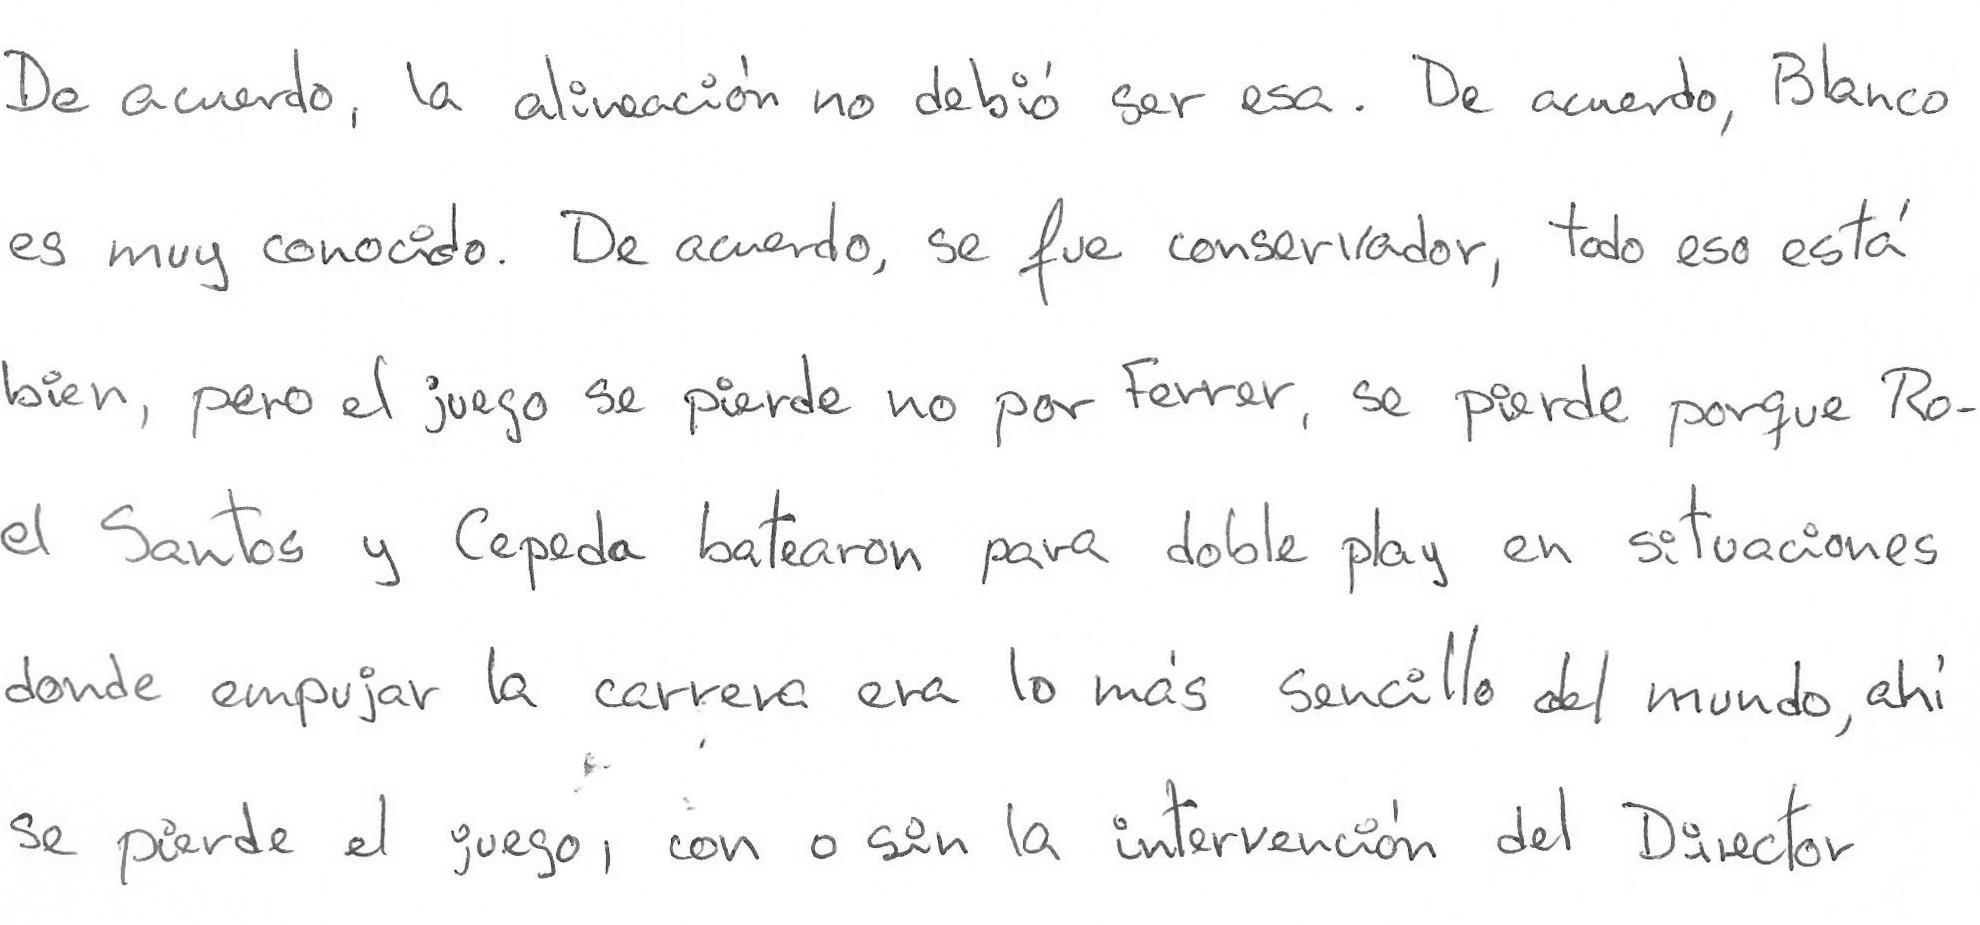 De acuerdo, la alineación no debió ser esa. De acuerdo, Blanco
es muy conocido. De acuerdo, se fue conservador, todo eso está
bien, pero el juego se pierde no por Ferrer, se pierde porque Ro-
el Santos y Cepeda batearon para doble play en situaciones
donde empujar la carrera era lo más sencillo del mundo, ahí
se pierde el juego, con o sin la intervención del Director